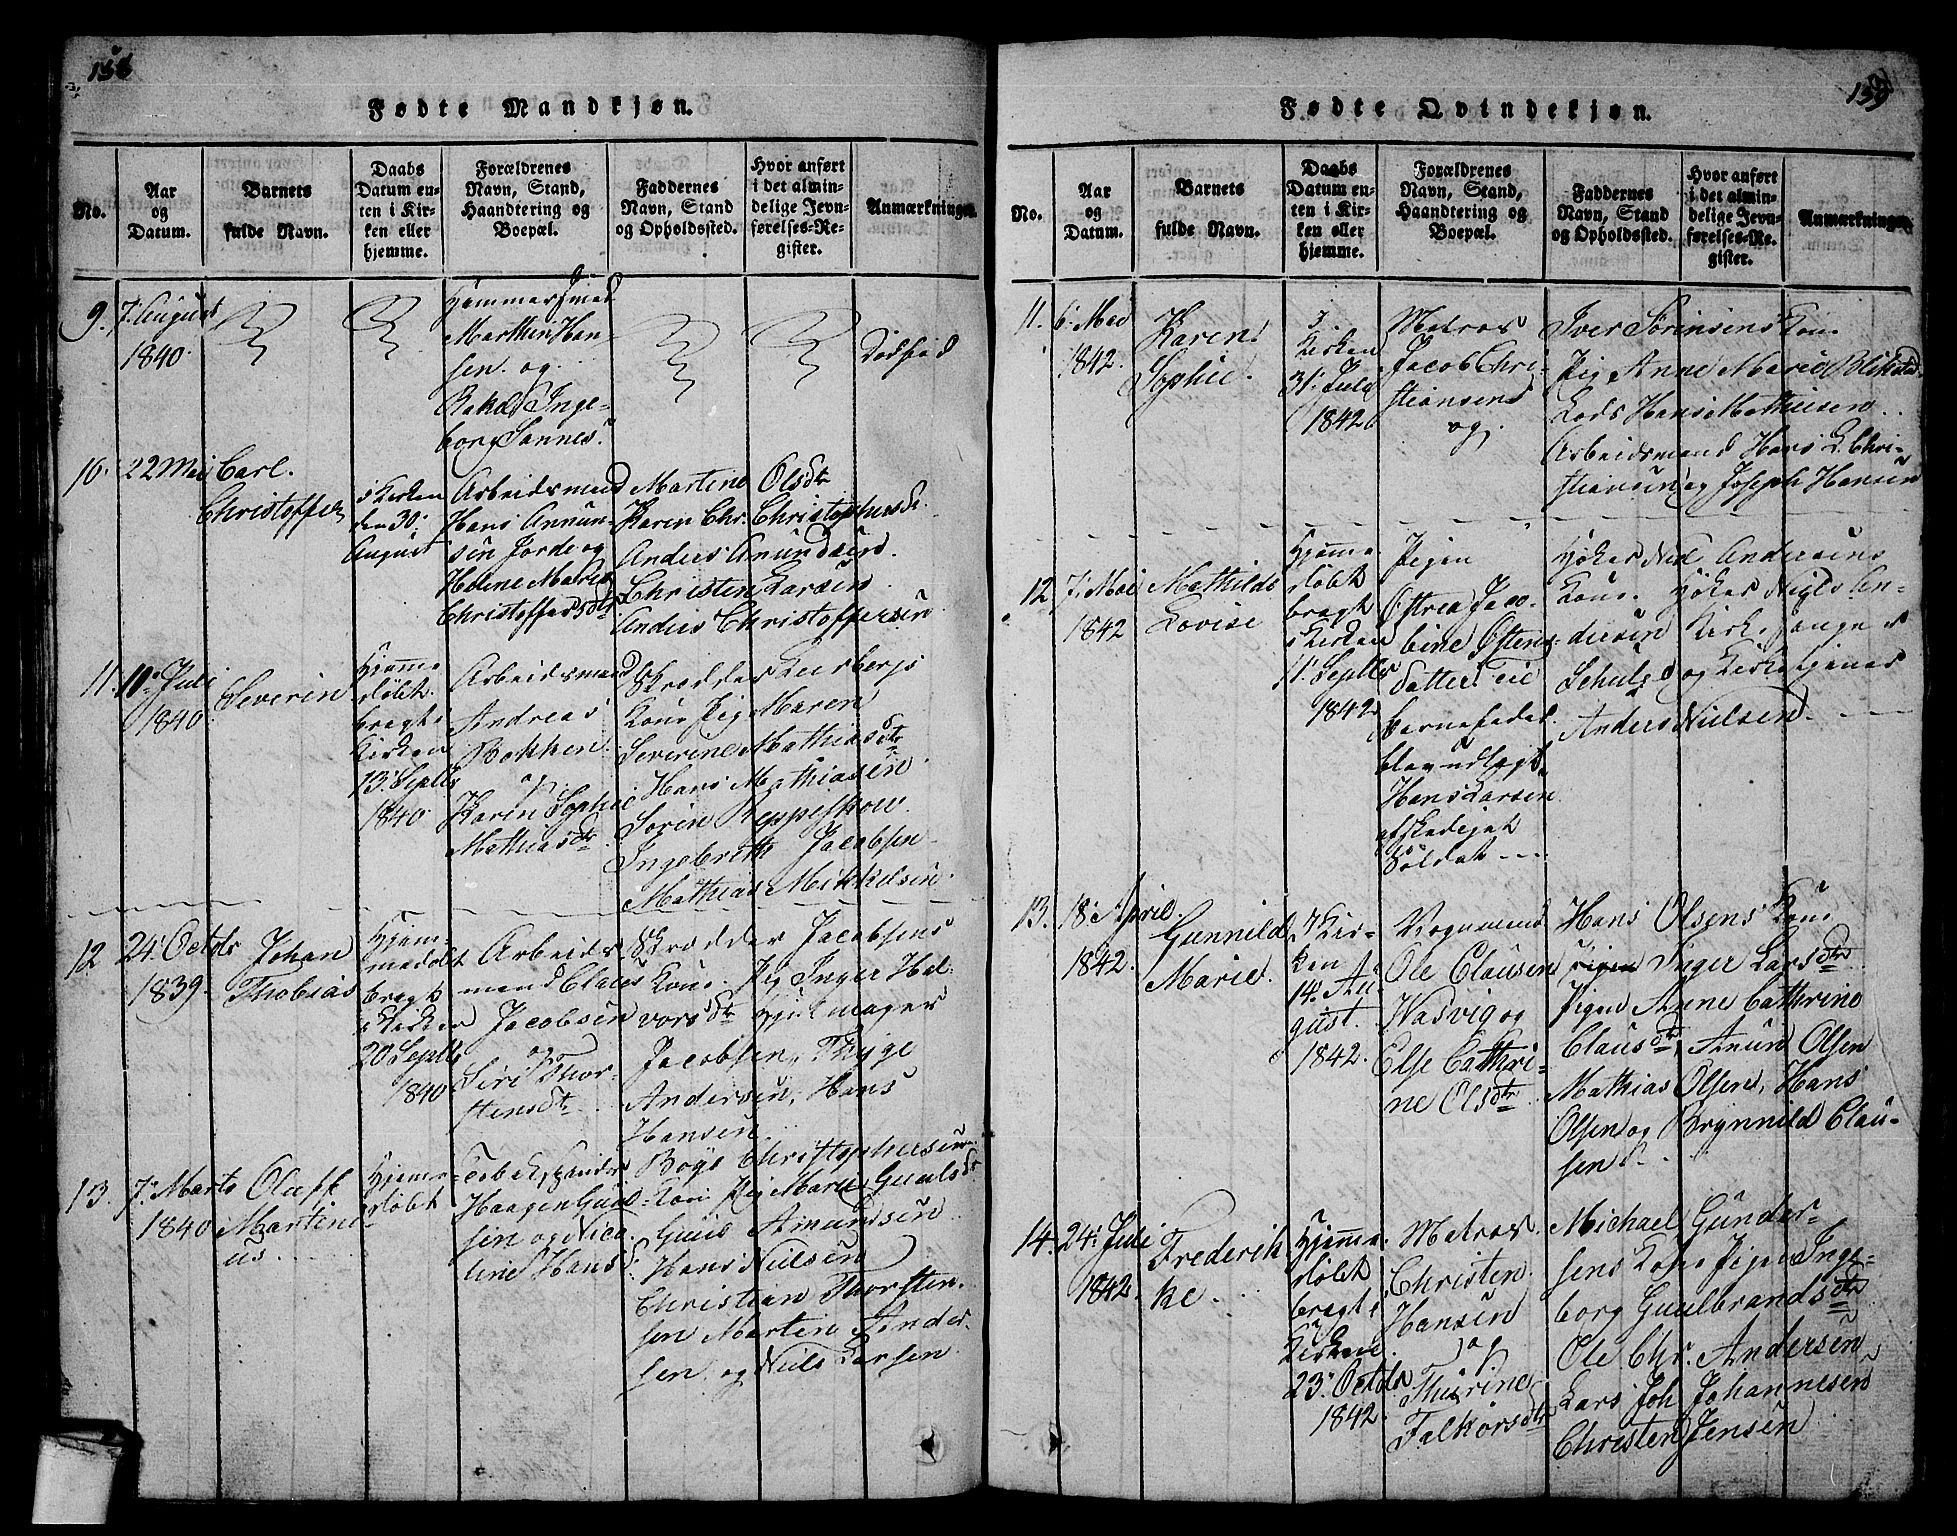 158
Fødte Mandkjøn.
No.
Aar
og
Datum.
Barnets
fulde Navn.
Daabs
Datum en-
ten i Kir-
ken eller
hjemme.
Forældrenes
Navn, Stand,
Haandtering og
Boepæl.
Faddernes
Navn, Stand
og Opholdssted.
Hvor anført
i det almin-
delige Jevn-
førelses-Re-
gister.
Anmærkninger.
9.
7. August
1840.
Hammersmed
Marthin Han-
sen. og
Rakel Inge-
borg Sannes.
Dødfød
10.
22 Mai
Carl.
Christoffer
i Kirken
den 30.
August
Arbeidsmand
Hans Annun-
sen Jorde og
Helene Marie
Christoffersdtr
Martine Olsdtr
Karen Chr. Christophersd.
Anders Anundsen.
Christen Larsen
Anders Christoffersen
11.
10. Juli
1840.
Severin
Hjemme
døbt
bragt i
Kirken
13. Septbr
1840
Arbeidsmand
Andreas
Bakken
og
Karen Sophie
Mathiasdtr.
Skrædder Lursbergs
Kone Pig Maren
Severine Mathiasdtr
Hans Mathiasen.
Søren Reppeskow.
Ingebrith Jacobsen
Mathias Mikkelsen.
12
24. Octbr
1839.
Johan
Thobias
Hjem-
medøbt
bragt
i Kirken
20 Septbr
1840
Arbeids-
mand Claus
Jacobsen
og
Siri Thor-
stensdtr.
Skrædder Jacobsens
Kone. Pig Inger Hal-
vorsdtr Hjulmager
Jacobsen, Thyge
Andersen, Hans
Hansen.
13.
7. Marts
1840
Olaff
Martin-
us.
Hjemme
døbt
Haagen Guul-
sen og Nico-
line Hansd.
Boye Christophersens
Kone Pig Marie Guulsdt
Guul Amundsen
Hans Nielsen
Christian Thorsten-
sen Martin Ander-
sen. og Niels Larsen.
159
Fødte Qvindekjøn.
No.
Aar
og
Datum.
Barnets
fulde Navn.
Daabs
Datum en-
ten i Kir-
ken eller
hjemme.
Forældrenes
Navn, Stand,
Haandtering og
Boepæl.
Faddernes
Navn, Stand
og Opholdssted.
Hvor anført
i det almin-
delige Jevn-
førelses-Re-
gister.
Anmærkninger.
11.
6. Mai
1842.
Karen
Sophie.
I
Kirken
31. Juli
1842
Matros
Jacob Chri-
stiansen
og.
Iver Sørensens Kone
Pig Anne Marie Blikstad
Lods Hans Mathisen
Arbeidsmand Hans L. Chri-
stiansen og Joseph Hansen
12
7. Mai
1842
Mathilde
Lovise
Hjemme
døbt
bragt
i Kirken
11. Septbr
1842
Pigen
Østrea Jaco-
bine Østens-
datter Til
barnefader
blev udlagt
Hans Larsen
afskediget
Soldat ---
Høker Niel Andersens
Kone. Høker Niels An-
dersen Kirkesanger
Schulze og Kirketjener
Anders Nielsen.
13.
18. April.
1842.
Gunnild
Marie.
I Kir-
ken
14. Au-
gust.
1842.
Vognmand
Ole Clausen
Wasvig og
Else Cathri-
ne Olsdtr
Hans Olsens Kone
Pigen Inger Larsdtr
Pigen Anne Cathrine
Clausdtr, Anun Olsen
Mathias Olsen, Hans
Olsen og Brynnild Clau-
sen.
14.
24. Juli
1842.
Frederik-
ke.
Hjemme
døbt
bragt i
Kirken.
23. Octbr
1842.
Matros.
Christen
Hansen
og
Thurine
Falkorsdtr
Michael Gunder-
sens Kone Pigen Inge-
borg Guulbrandsdtr
Ole Chr. Andersen
Lars Joh Johannesen
Christen Jensen